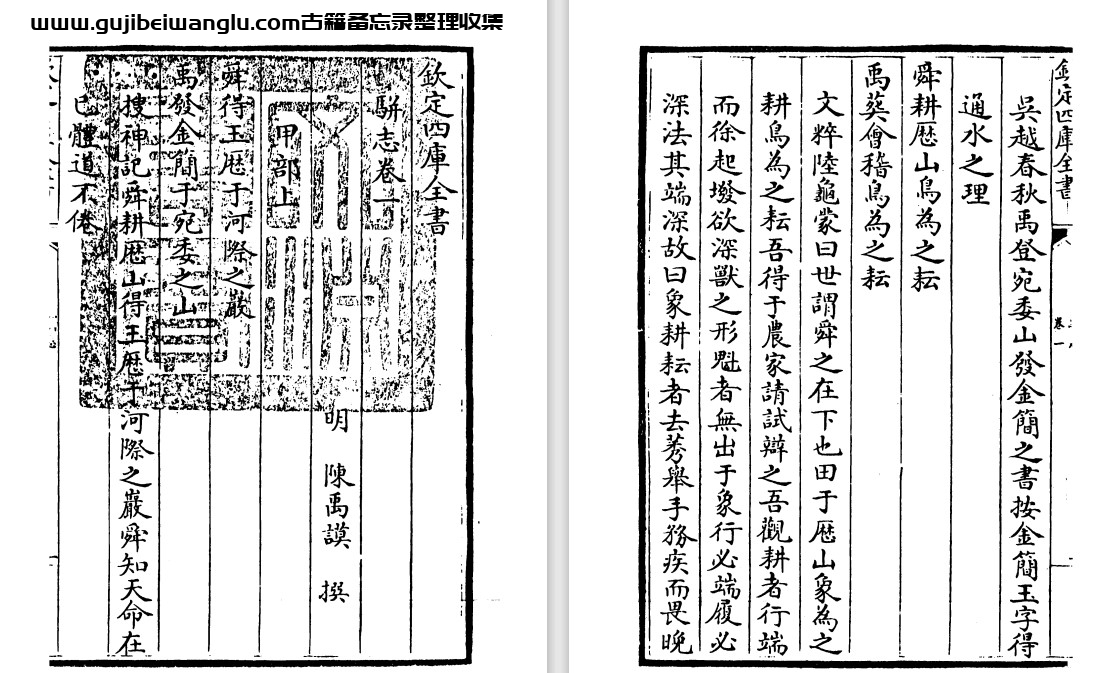 www.gujibeiwanglu.com古籍备忘录整理收集
欽定四庫全書
駢志卷一
明 陳禹謨 撰
甲部上
舜得玉厯于河際之巖
禹發金簡于宛委之山
搜神記舜耕厯山得玉厯于河際之巖舜知天命在
已體道不倦
欽定四庫全書
卷一
吳越春秋禹登宛委山發金簡之書按金簡玉字得
通水之理
舜耕厯山鳥為之耘
禹葬會稽鳥為之耘
文粹陸龜蒙曰世謂舜之在下也田于厯山象為之
耕鳥為之耘吾得于農家請試辯之吾觀耕者行端
而徐起墢欲深獸之形魁者無出于象行必端履必
深法其端深故曰象耕耘者去莠舉手務疾而畏晚